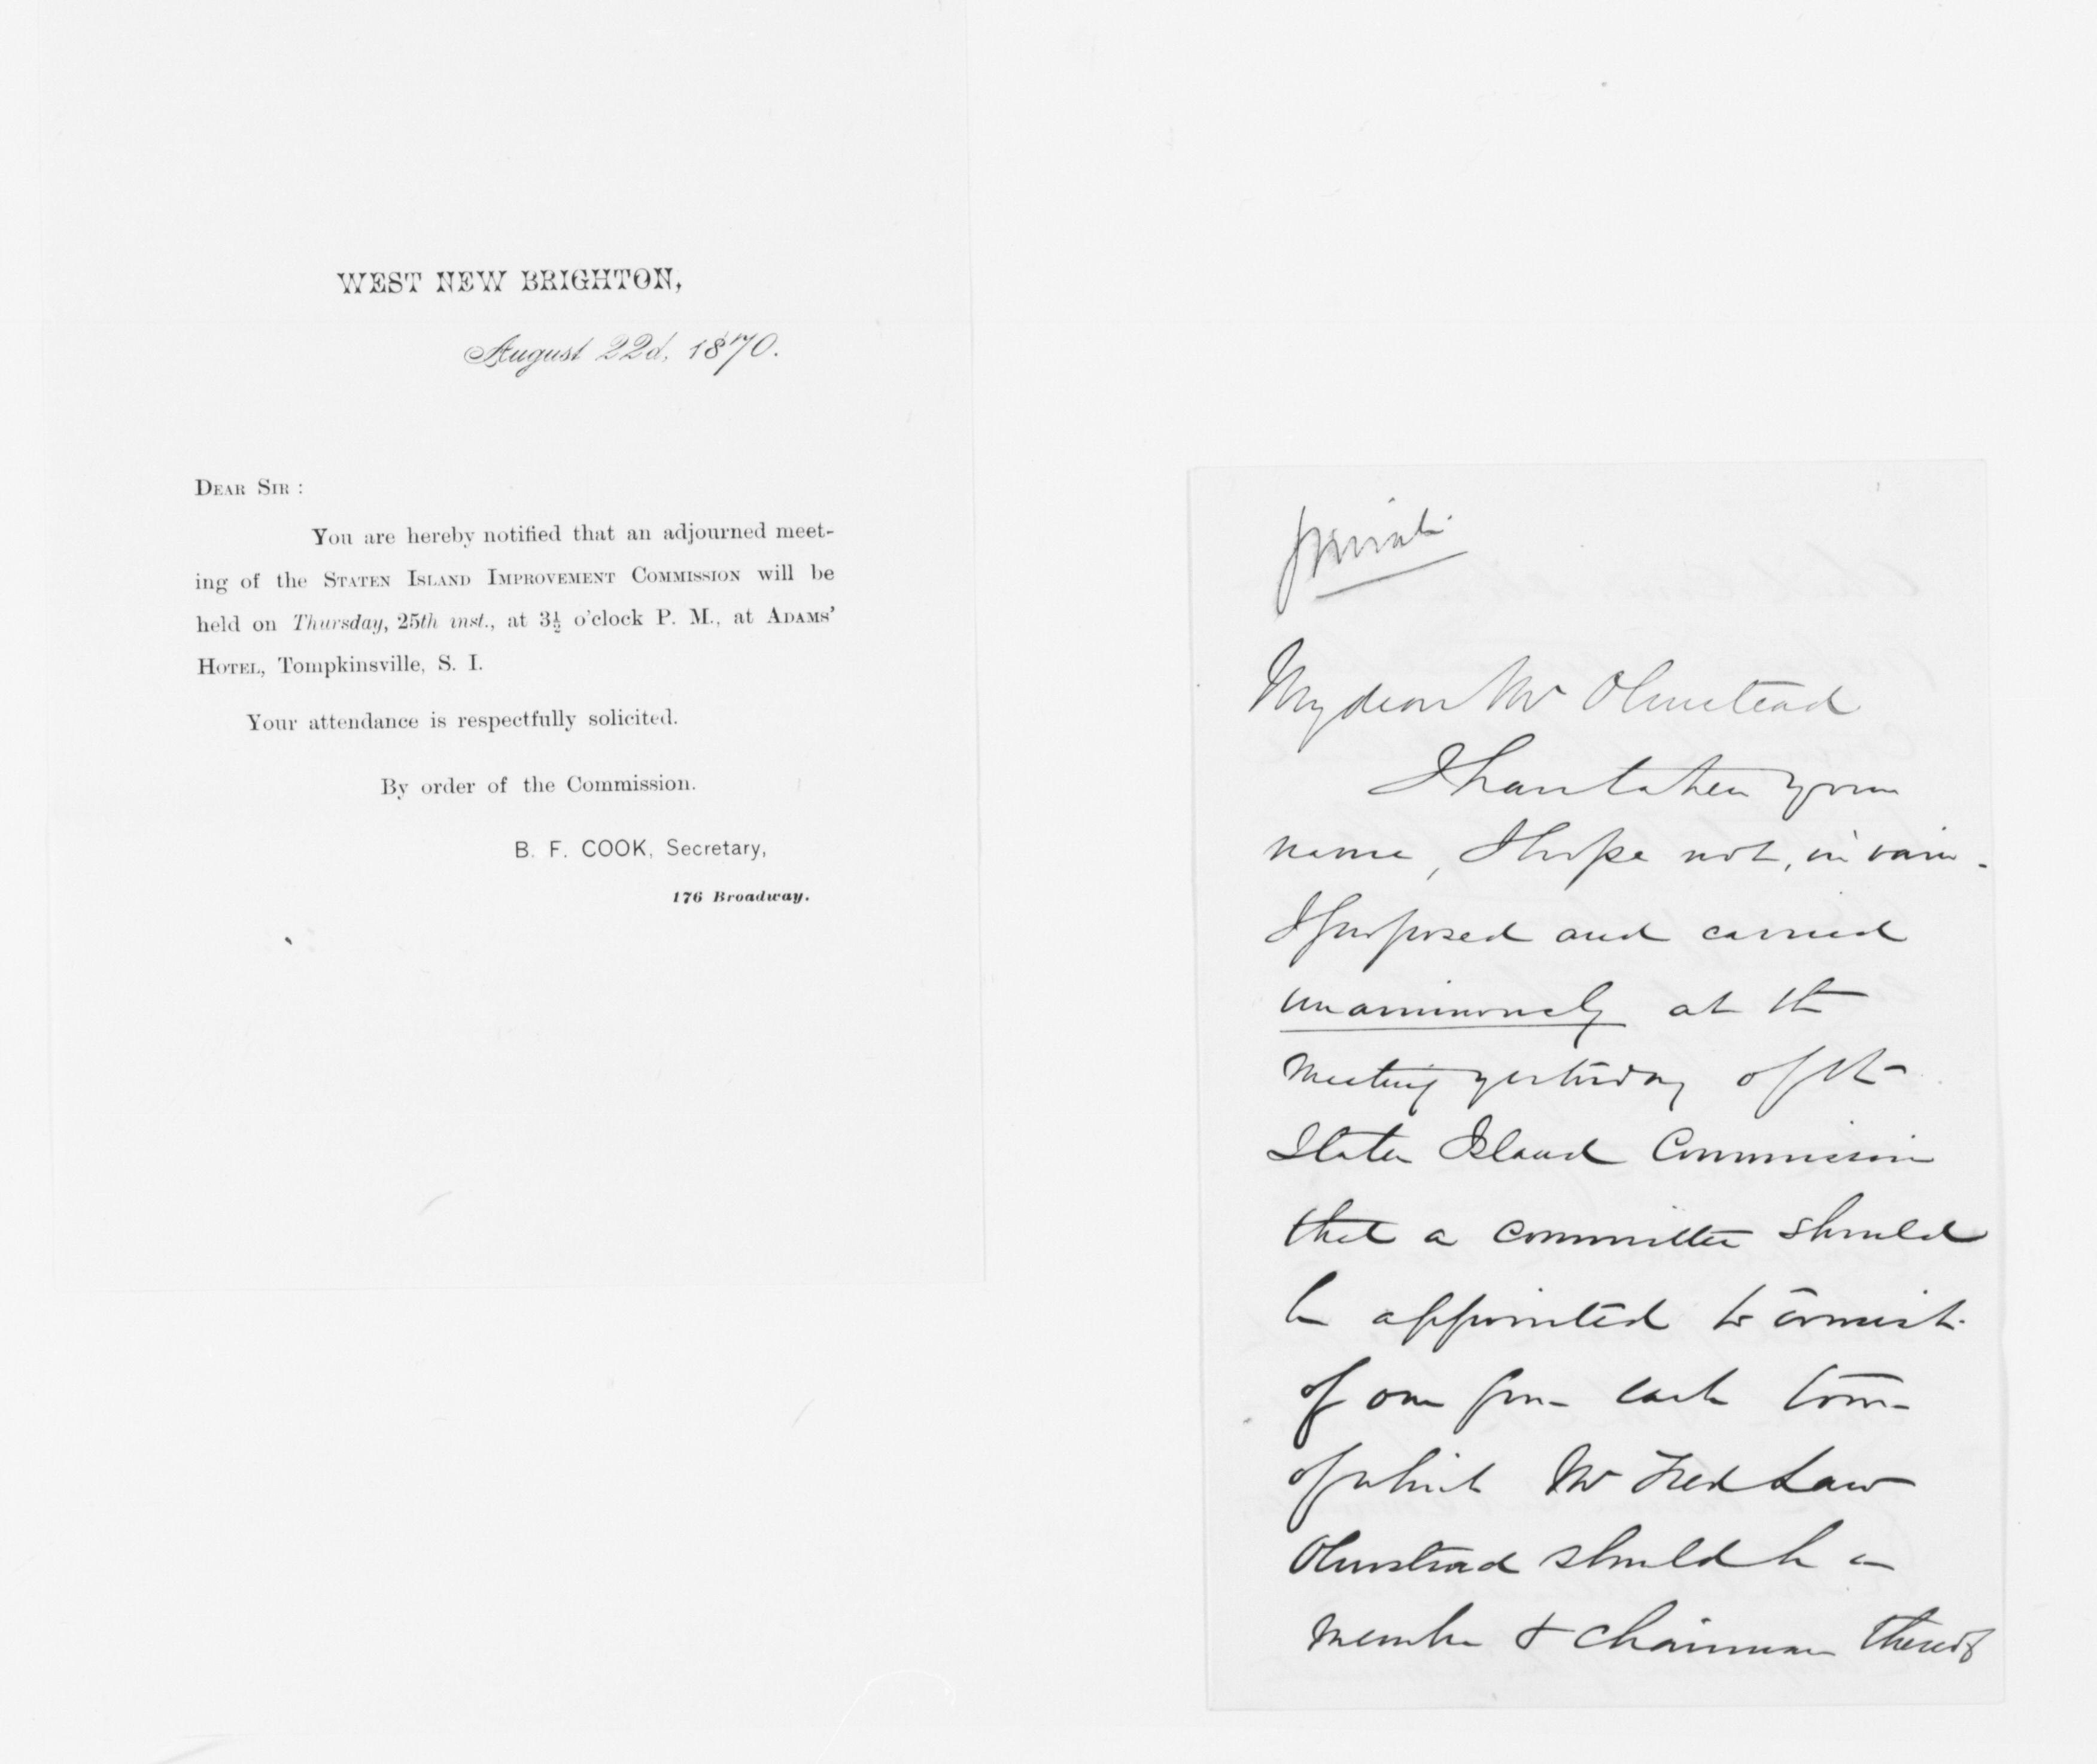 WEST NEW BRIGHTON,
August 22d, 1870.
DEAR SIR :
You are hereby notified that an adjourned meet-
ing of the STATEN ISLAND IMPROVEMENT COMMISSION will be
held on Thursday, 25th inst., at 3½ o'clock P. M., at ADAMS'
HOTEL, Tompkinsville, S. I.
Your attendance is respectfully solicited.
By order of the Commission.
B. F. COOK, Secretary,
176 Broadway.
Private
My dear Mr Olmstead
I have taken your
name, I hope not, in vain.
I proposed and carried
unanimously at the
meeting yesterday of the
Staten Island Commission
that a committee should
be appointed to consist
of one from each town
of which Mr Fred Law
Olmstead should be a
member & chairman thereof